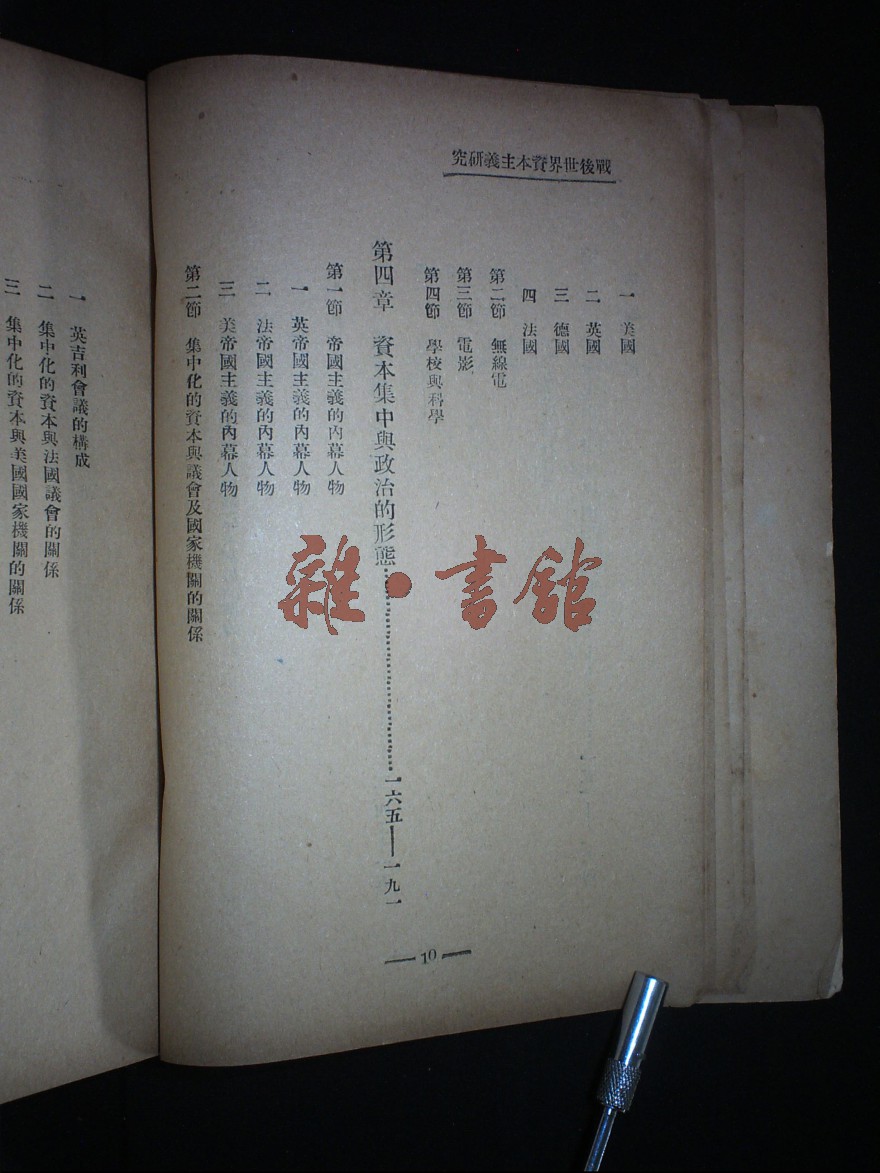 戰後世界資本主義研究
一 美國
二 英國
三 德國
四 法國
第二節 無線電
第三節 電影
第四節 學校與科學
第四章 資本集中與政治的形態………………一六五——一九一
第一節 帝國主義的內幕人物
一 英帝國主義的內幕人物
二 法帝國主義的內幕人物
三 美帝國主義的內幕人物
第二節 集中化的資本與議會及國家機關的關係
— 10 —
一 英吉利會議的構成
二 集中化的資本與法國議會的關係
三 集中化的資本與美國國家機關的關係
雜·書館